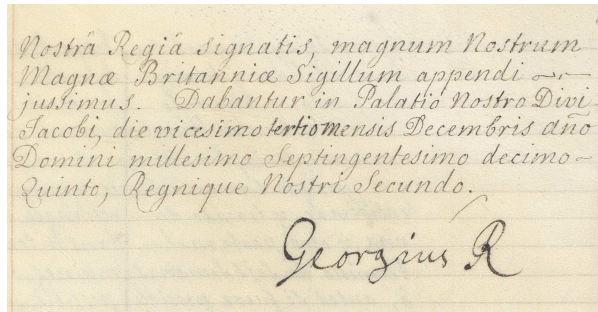 Nostrâ Regiâ signatis, magnum Nostrum
Magnæ Britanniæ Sigillum appendi
jussimus. Dabantur in Palatio Nostro Divi
Jacobi, die vicesimo tertio mensis Decembris año
Domini millesimo Septingentesimo decimo-
Quinto, Regnique Nostri Secundo.
Georgius R